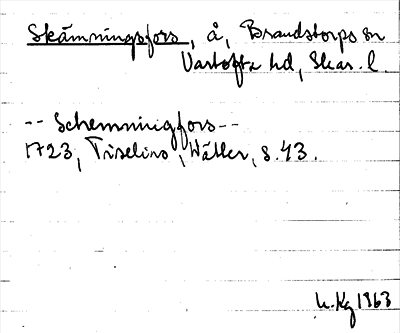 Skämningsfors, å, Brandstorps sn
Vartofta hd, Skar. l.
-- Schemningfors --
1723, Tiselius, Wätter, s. 43.
1963